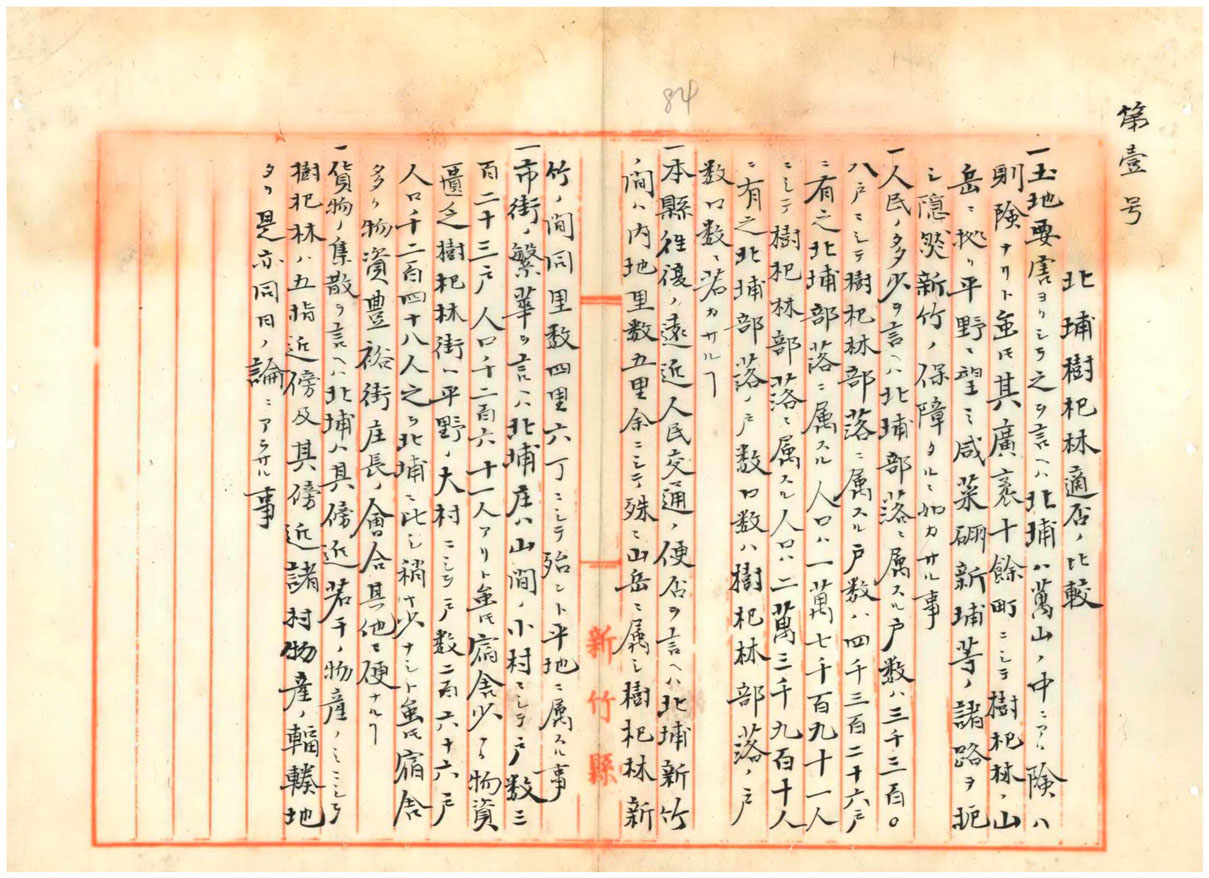 84
第壹号
北埔樹杞林適否ノ比較
一土地要害ヨリシテ之ヲ言ヘハ北埔ハ萬山ノ中ニアリ険ハ
則険ナリト虽圧其廣袤十餘町ニシテ樹杞林ノ山
岳ニ拠リ平野ニ望ミ咸菜硼新埔等ノ諸路ヲ扼
シ隠然新竹ノ保障タルニ如カサル事
一人民ノ多少ヲ言ヘハ北埔部落ニ属スル戸数ハ三千三百〇
八戸ニシテ樹杞林部落ニ属スル戸数ハ四千三百二十六戸
ニ有之北埔部落ニ属スル人口ハ一萬七千百九十一人
ニシテ樹杞林部落ニ属スル人口ハ二萬三千九百十人
ニ有之北埔部落ノ戸数口数ハ樹杞林部落ノ戸
数口数ニ若カサルヿ
一本縣往復ノ遠近人民交通ノ便否ヲ言ヘハ北埔新竹
ノ間ハ内地里数五里余ニシテ殊ニ山岳ニ属シ樹杞林新
竹ノ間同里数四里六丁ニシテ殆ント平地ニ属スル事
一市街ノ繁華ヲ言ヘハ北埔庄ハ山間ノ小村ニシテ戸数三
百二十三戸人口千二百六十一人アリト虽圧宿舎少ク物資
匱乏樹杞林街ハ平野ノ大村ニシテ戸数二百六十六戸
人口千二百四十八人之ヲ北埔ニ比シ稍ヤ少ナシト虽圧宿舎
多ク物資豊裕街庄長ノ會合其他ニ便ナルヿ
一貨物ノ集散ヲ言ヘハ北埔ハ其傍近若干ノ物産ノミニシテ
樹杞林ハ五指近傍及其傍近諸村物産ノ輻輳地
タリ是亦同日ノ論ニアラサル事
新竹縣